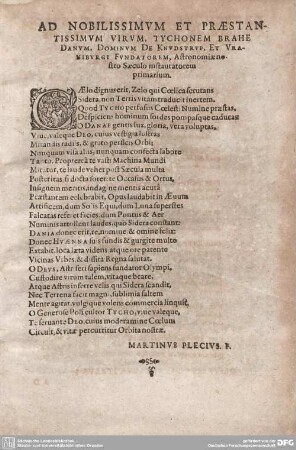 AD NOBILISSIMVM ET PRÆSTAN-
TISSIMVM VIRVM, TYCHONEM BRAHE
DANVM, DOMINVM DE KNVDSTRVP, ET VRA-
NIBVRGI FVNDATOREM, Astronomiæ no-
stro Sæculo instauratorem
primarium.
CÆlo dignus erit, Zelo qui Cœlica scrutans
Sidera, non Terris vitam traducit inertem.
Quod TYCHO perfusus Cœlesti Numine præstas,
Despiciens hominum sordes pompasque caducas:
O DANAE gentis fua, gloria, vera voluptas,
Vive, valeque DEO, cuius vestigia lustras
Mirandis radiis, & groto perficis Orbis
Nunquam visa aliis, nunquam confecta labore
Tanto. Propter ea te vasti Machina Mundi
Miratur, te laude vehet post Sæcula multa
Posteritas, si docta foret te Occasus & Ortus,
Insignem mentis, indaginement is acuta
Præstantem celebrabit, Opus laudabit in Ævum
Artificem, dum Solis Equi, dum Luna superstes
Falcatas referet facies, dum Pontus & Aer
Numinis attollent laudes, quo Sidera constant:
DANIA donec erit, te, nomine & omine felix!
Donec HVÆNNA suis fundis & gurgite multo
Extabit, loca læta videns atque ore patente
Vicinas Vrbes, & dissita Regna salutat.
O DEVS, Astriferi sapiens fundator Olympi,
Custodire virum talem, vitaque beare,
Atque Astris inserre velis, qui Sidera scandit,
Nec Terrena facit magni, sublimia saltem
Mente agitat, vulgique volens commercia linquit,
O Generose Poli cultor TYCHO, viue valeque,
Te seruante DEO, cuius moderamine Cœlum
Circuit, & vitæ percutitur Orbita nostræ.
MARTINVS PLECIVS. P.
DFG